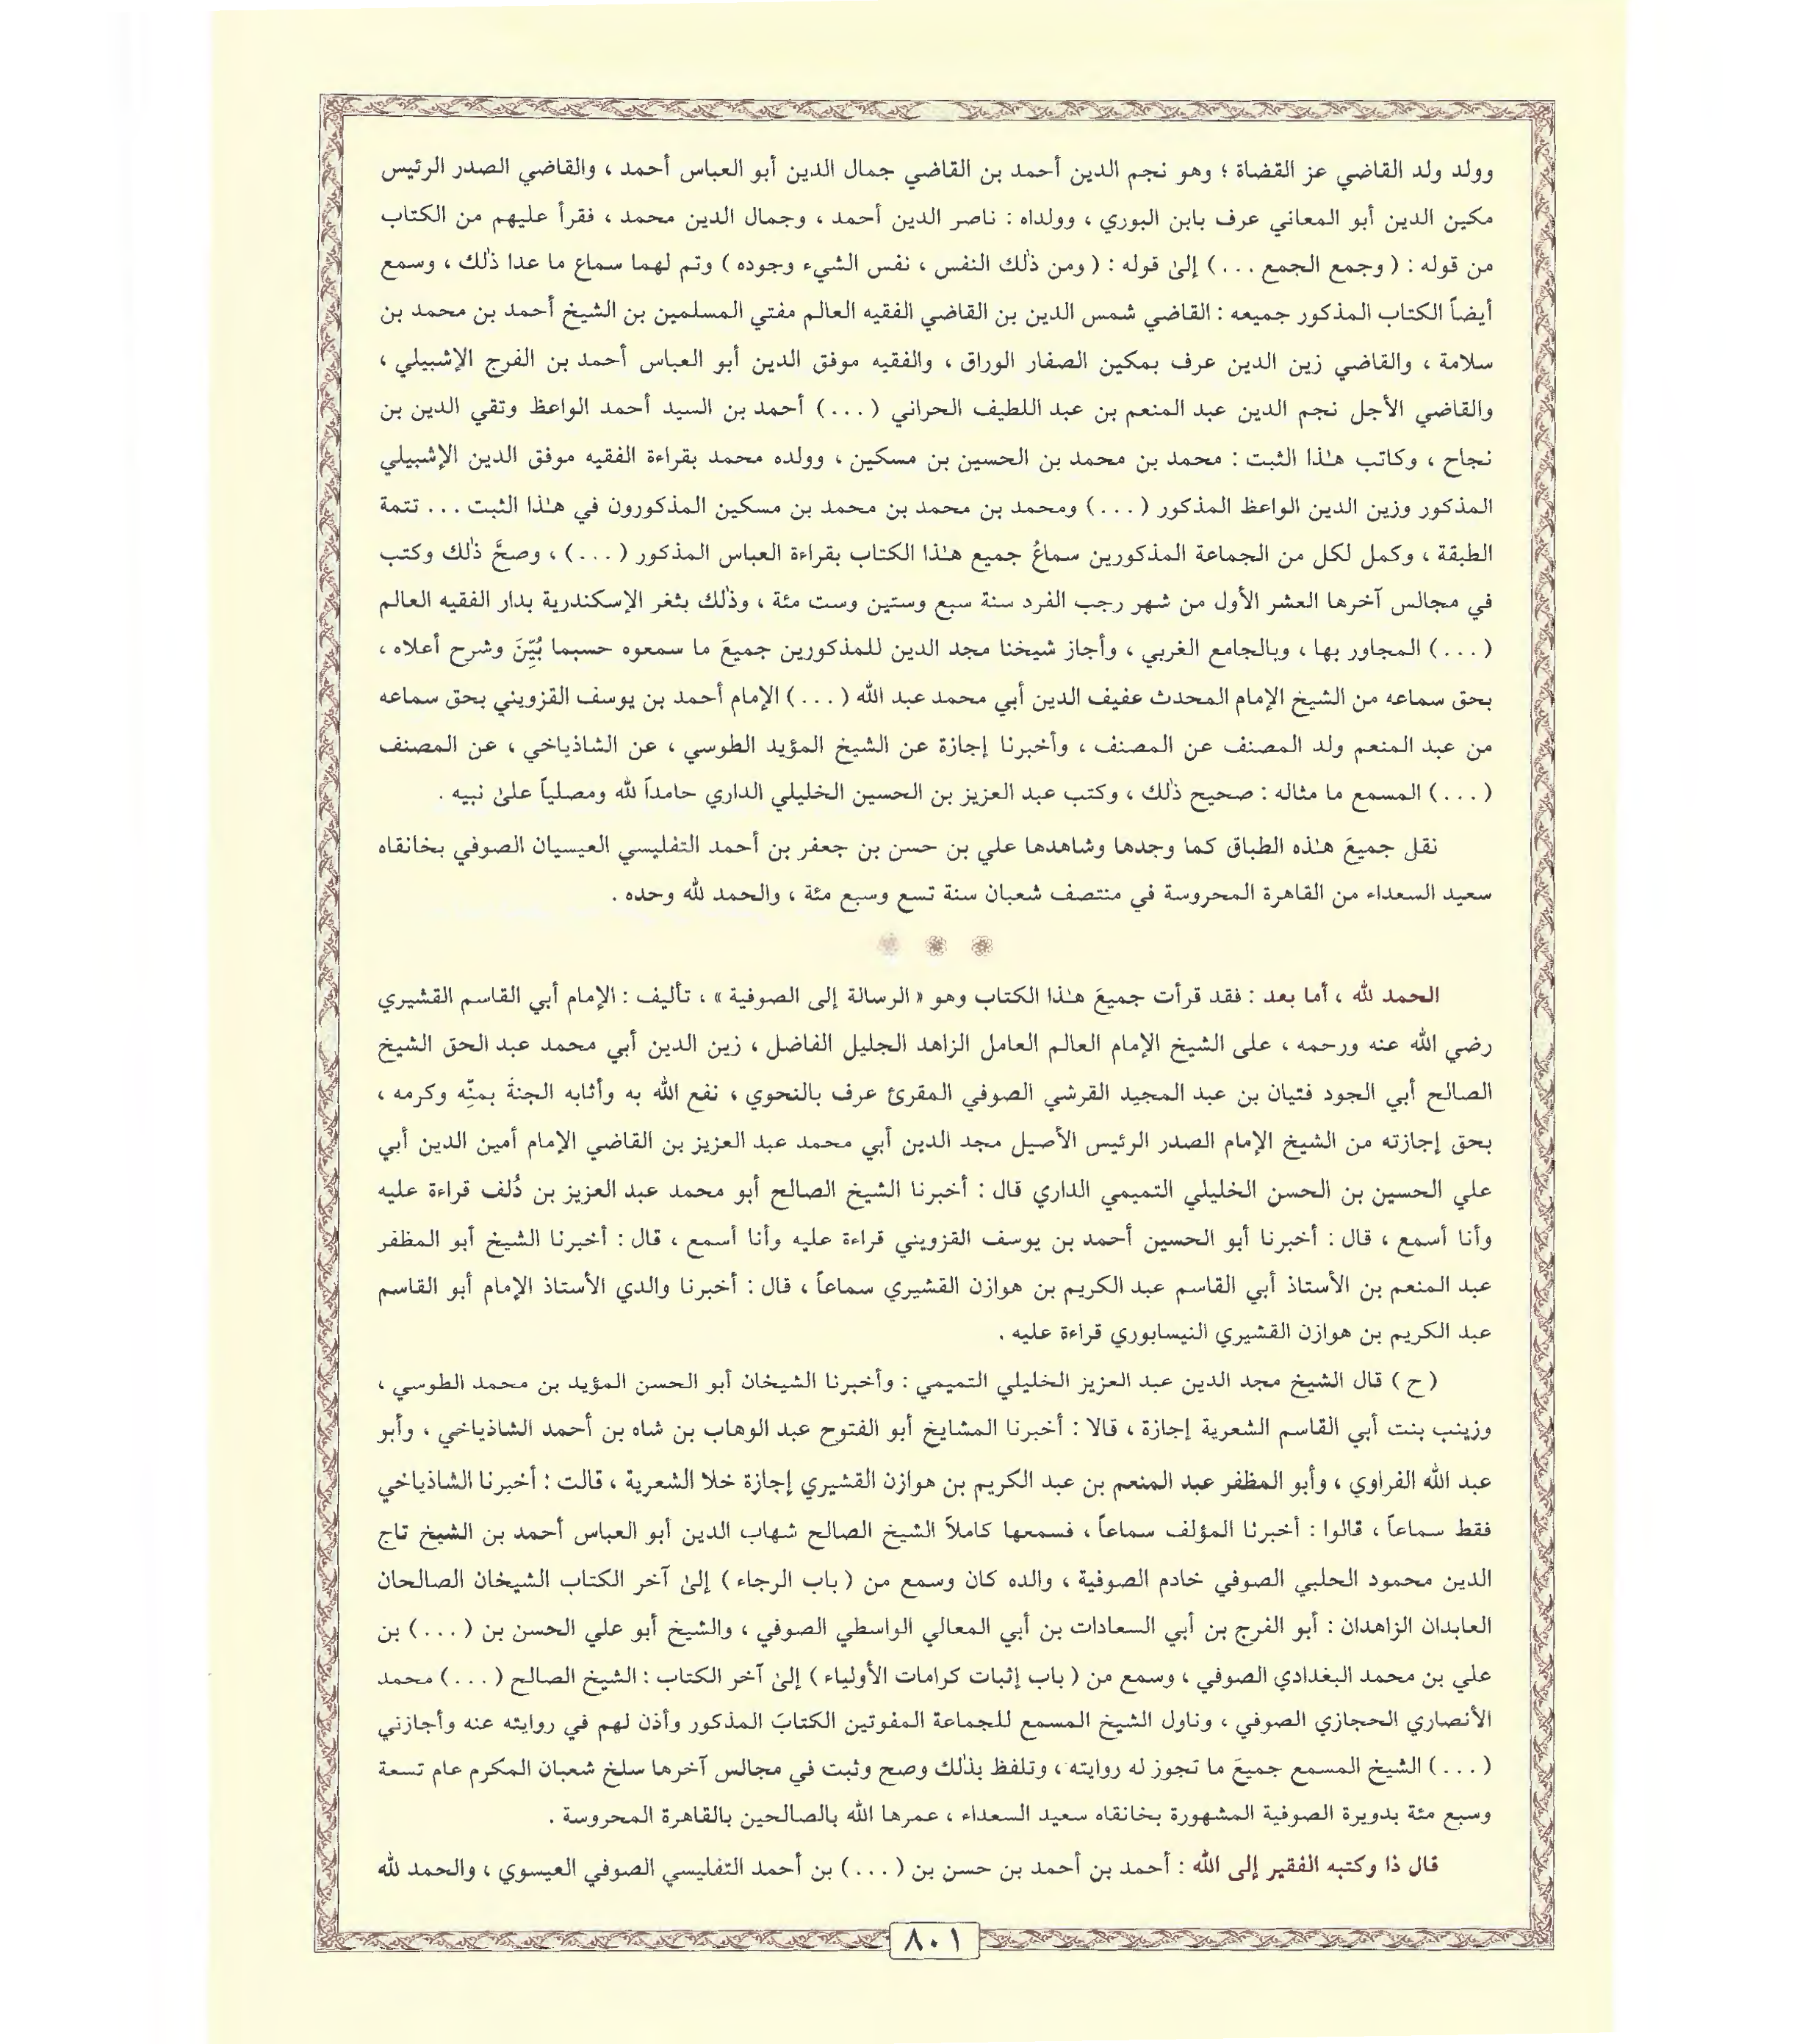 وولد ولد القاضي عز القضاة ؛ وهو نجم الدين أحمد بن القاضي جمال الدين أبو العباس أحمد ، والقاضي الصدر الرئيس
مكين الدين أبو المعاني عرف بابن البوري ، وولداه : ناصر الدين أحمد ، وجمال الدين محمد ، فقرأ عليهم من الكتاب
من قوله : ( وجمع الجمع ... ) إلىٰ قوله : ( ومن ذٰلك النفس ، نفس الشيء وجوده ) وتم لهما سماع ما عدا ذٰلك ، وسمع
أيضاً الكتاب المذكور جميعه : القاضي شمس الدين بن القاضي الفقيه العالم مفتي المسلمين بن الشيخ أحمد بن محمد بن
سلامة ، والقاضي زين الدين عرف بمكين الصفار الوراق ، والفقيه موفق الدين أبو العباس أحمد بن الفرج الإشبيلي ،
والقاضي الأجل نجم الدين عبد المنعم بن عبد اللطيف الحراني ( ... ) أحمد بن السيد أحمد الواعظ وتقي الدين بن
نجاح ، وكاتب هـٰذا الثبت : محمد بن محمد بن الحسين بن مسكين ، وولده محمد بقراءة الفقيه موفق الدين الإشبيلي
المذكور وزين الدين الواعظ المذكور ( ... ) ومحمد بن محمد بن محمد بن مسكين المذكورون في هـٰذا الثبت ... تتمة
الطبقة ، وكمل لكل من الجماعة المذكورين سماعُ جميع هـٰذا الكتاب بقراءة العباس المذكور ( ... ) ، وصحَّ ذٰلك وكتب
في مجالس آخرها العشر الأول من شهر رجب الفرد سنة سبع وستين وست مئة ، وذٰلك بثغر الإسكندرية بدار الفقيه العالم
( ... ) المجاور بها ، وبالجامع الغربي ، وأجاز شيخنا مجد الدين للمذكورين جميعَ ما سمعوه حسبما بُيِّنَ وشرح أعلاه ،
بحق سماعه من الشيخ الإمام المحدث عفيف الدين أبي محمد عبد الله ( ... ) الإمام أحمد بن يوسف القزويني بحق سماعه
من عبد المنعم ولد المصنف عن المصنف ، وأخبرنا إجازة عن الشيخ المؤيد الطوسي ، عن الشاذياخي ، عن المصنف
( ... ) المسمع ما مثاله : صحيح ذٰلك ، وكتب عبد العزيز بن الحسين الخليلي الداري حامداً لله ومصلياً علىٰ نبيه .
نقل جميعَ هـٰذه الطباق كما وجدها وشاهدها علي بن حسن بن جعفر بن أحمد التفليسي العيسيان الصوفي بخانقاه
سعيد السعداء من القاهرة المحروسة في منتصف شعبان سنة تسع وسبع مئة ، والحمد لله وحده .
الحمد لله ، أما بعد : فقد قرأت جميعَ هـٰذا الكتاب وهو « الرسالة إلى الصوفية » ، تأليف : الإمام أبي القاسم القشيري
رضي الله عنه ورحمه ، على الشيخ الإمام العالم العامل الزاهد الجليل الفاضل ، زين الدين أبي محمد عبد الحق الشيخ
الصالح أبي الجود فتيان بن عبد المجيد القرشي الصوفي المقرئ عرف بالنحوي ، نفع الله به وأثابه الجنةَ بمنِّه وكرمه ،
بحق إجازته من الشيخ الإمام الصدر الرئيس الأصيل مجد الدين أبي محمد عبد العزيز بن القاضي الإمام أمين الدين أبي
علي الحسين بن الحسن الخليلي التميمي الداري قال : أخبرنا الشيخ الصالح أبو محمد عبد العزيز بن دُلف قراءة عليه
وأنا أسمع ، قال : أخبرنا أبو الحسين أحمد بن يوسف القزويني قراءة عليه وأنا أسمع ، قال : أخبرنا الشيخ أبو المظفر
عبد المنعم بن الأستاذ أبي القاسم عبد الكريم بن هوازن القشيري سماعاً ، قال : أخبرنا والدي الأستاذ الإمام أبو القاسم
عبد الكريم بن هوازن القشيري النيسابوري قراءة عليه .
( ح ) قال الشيخ مجد الدين عبد العزيز الخليلي التميمي : وأخبرنا الشيخان أبو الحسن المؤيد بن محمد الطوسي ،
وزينب بنت أبي القاسم الشعرية إجازة ، قالا : أخبرنا المشايخ أبو الفتوح عبد الوهاب بن شاه بن أحمد الشاذياخي ، وأبو
عبد الله الفراوي ، وأبو المظفر عبد المنعم بن عبد الكريم بن هوازن القشيري إجازة خلا الشعرية ، قالت : أخبرنا الشاذياخي
فقط سماعاً ، قالوا : أخبرنا المؤلف سماعاً ، فسمعها كاملاً الشيخ الصالح شهاب الدين أبو العباس أحمد بن الشيخ تاج
الدين محمود الحلبي الصوفي خادم الصوفية ، والده كان وسمع من ( باب الرجاء ) إلىٰ آخر الكتاب الشيخان الصالحان
العابدان الزاهدان : أبو الفرج بن أبي السعادات بن أبي المعالي الواسطي الصوفي ، والشيخ أبو علي الحسن بن ( ... ) بن
علي بن محمد البغدادي الصوفي ، وسمع من ( باب إثبات كرامات الأولياء ) إلىٰ آخر الكتاب : الشيخ الصالح ( ... ) محمد
الأنصاري الحجازي الصوفي ، وناول الشيخ المسمع للجماعة المفوتين الكتابَ المذكور وأذن لهم في روايته عنه وأجازني
( ... ) الشيخ المسمع جميعَ ما تجوز له روايته ، وتلفظ بذٰلك وصح وثبت في مجالس آخرها سلخ شعبان المكرم عام تسعة
وسبع مئة بدويرة الصوفية المشهورة بخانقاه سعيد السعداء ، عمرها الله بالصالحين بالقاهرة المحروسة .
قال ذا وكتبه الفقير إلى الله : أحمد بن أحمد بن حسن بن ( ... ) بن أحمد التفليسي الصوفي العيسوي ، والحمد لله
٨٠١